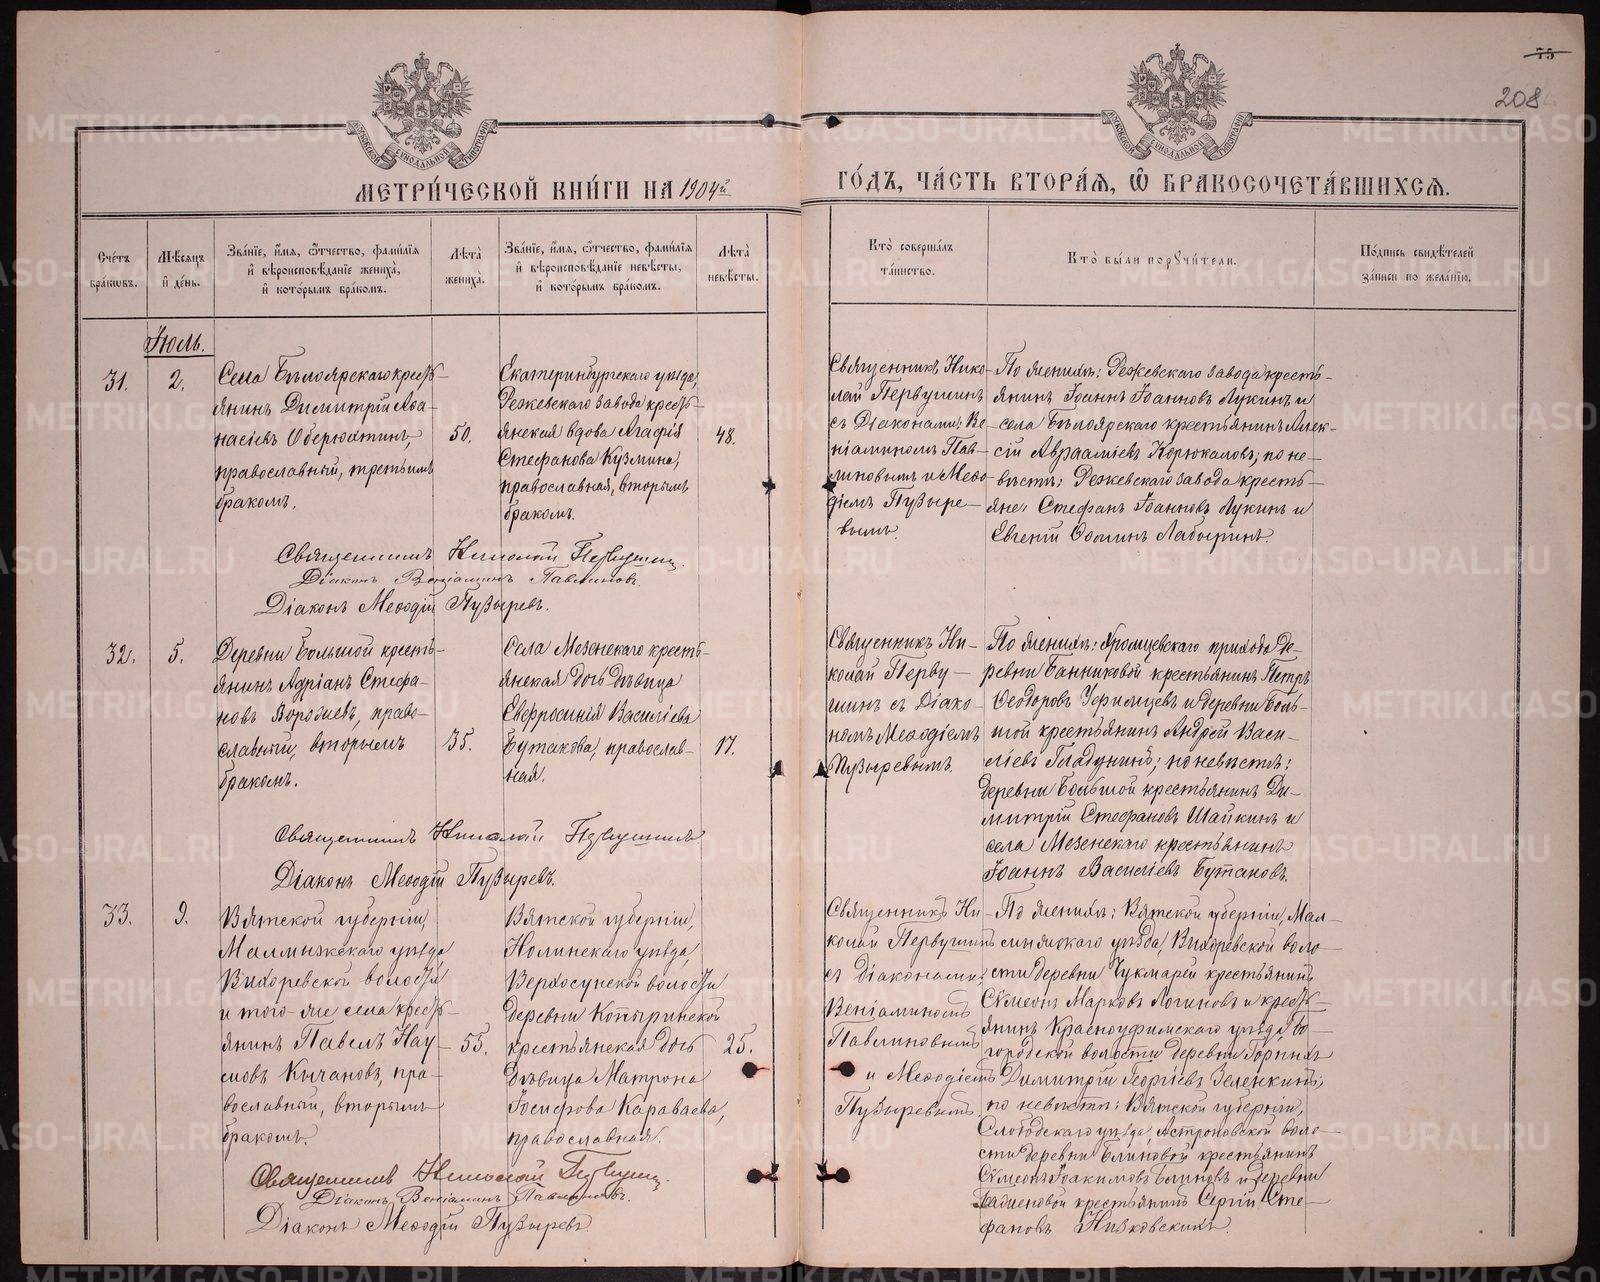 75
208
МЕТРИ́ЧЕСКОЙ КНИ́ГИ НА 1904й
ГО́ДЪ, ЧА́СТЬ ВТОРА́Я, Ѽ БРАКОСОЧЕТА́ВШИХСЯ.
Сче́тъ бра́ковъ.
Мѣ́сяцъ и де́нь.
Зва́нїе, и́мя, ѻ҆́тчество, фами́лїя и҆ вѣроисповѣ́данїе жениха̀, и҆ кото́рымъ бра́комъ.
Лѣ́та жениха̀.
Зва́нїе, и́мя, ѻ҆́тчество, фами́лїя и҆ вѣроисповѣ́данїе невѣ́сты, и҆ кото́рымъ бра́комъ.
Лѣ́та невѣ́сты.
Кто̀ соверша́лъ та́инство.
Кто̀ бы́ли порꙋчи́тели.
По́дпись свидѣ́телей за́писи по жела́нїю.
Іюль.
31.
2.
Села Бѣлоярскаго кресть-
янинъ Димитрій Аѳа-
насіевъ Оберюхтинъ,
православный, третьимъ
бракомъ.
50.
Екатеринбургскаго уѣзда,
Режевскаго завода кресть-
янская вдова Агафія
Стефанова Кузмина,
православная, вторымъ
бракомъ.
48.
Священникъ Нико-
лай Первушинъ
съ Діаконами: Ве-
ніаминомъ Пав-
линовымъ и Меѳо-
діемъ Пузыре-
вымъ.
По женихѣ: Режевскаго завода кресть-
янинъ Іоаннъ Іоанновъ Лукинъ и
села Бѣлоярскаго крестьянинъ Алек-
сій Авраамiевъ Корюкаловъ; по не-
вѣстѣ: Режевскаго завода кресть-
яне: Стефанъ Іоанновъ Лукинъ и
Евгеній Ѳоминъ Лабыринъ.
Священникъ Николай Первушинъ.
Діаконъ Веніаминъ Павлиновъ.
Діаконъ Меѳодій Пузыревъ.
32.
5.
Деревни Большой кресть-
янинъ Адріанъ Стефа-
новъ Ворожевъ, право-
славный, вторымъ
бракомъ.
35.
Села Мезенскаго кресть-
янская дочь дѣвица
Евфросинія Василіева
Бутакова, православ-
ная.
17.
Священникъ Ни-
колай Перву-
шинъ съ Діако-
номъ Меѳодіемъ
Пузыревымъ.
По женихѣ: Хромцевскаго прихода де-
ревни Банниковой крестьянинъ Петръ
Ѳеодоровъ Уфимцевъ и деревни Боль-
шой крестьянинъ Андрей Васи-
ліевъ Гладунинъ; по невѣстѣ:
деревни Большой крестьянинъ Ди-
митрій Стефановъ Шайкинъ и
села Мезенскаго крестьянинъ
Іоаннъ Василіевъ Бутаковъ.
Священникъ Николай Первушинъ
Діаконъ Меѳодій Пузыревъ.
33.
9.
Вятской губерніи,
Малмыжскаго уѣзда
Вихоревской волости
и того-же села кресть-
янинъ Павелъ Нау-
мовъ Кичановъ, пра-
вославный, вторымъ
бракомъ.
55.
Вятской губерніи,
Нолинскаго уѣзда,
Верхосунской волости
деревни Копыринской
крестьянская дочь
дѣвица Матрона
Іосифова Караваева,
православная.
25.
Священникъ Ни-
колай Первушинъ
съ діаконами:
Веніаминомъ
Павлиновымъ
и Меѳодіемъ
Пузыревымъ.
По женихѣ: Вятской губерніи, Мал-
уѣзда, Вихоревской воло-
сти деревни Чукмарей крестьянинъ
Сѷмеонъ Марковъ Логиновъ и кресть-
янинъ Красноуфимскаго уѣзда, Бо-
городской волости деревни
Димитрій Георгіевъ Зеленкинъ;
по невѣстѣ: Вятской губерніи,
Слободскаго уѣзда, воло-
сти деревни Блиновой крестьянинъ
Сѷмеонъ Іоакимовъ Блиновъ и деревни
крестьянинъ Сергій Сте-
фановъ Низковскихъ.
Священникъ Николай Первушинъ.
Діаконъ Веніаминъ Павлиновъ.
Діаконъ Меѳодій Пузыревъ
METRIKI.GASO-URAL.RU